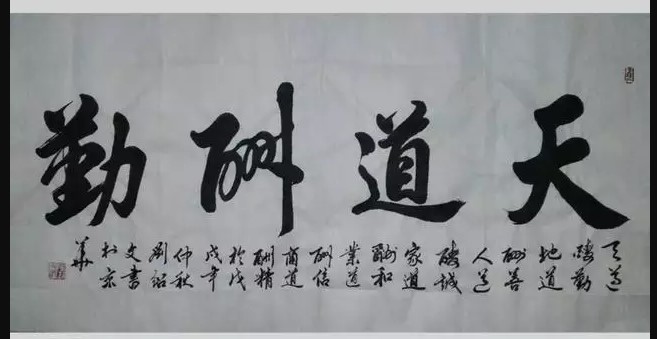 天道酬勤
天道
酬勤
地道
酬善
人道
酬誠
家道
酬和
業道
酬信
商道
酬精
於戊
戌年
仲秋
劉紹
文書
於京
華